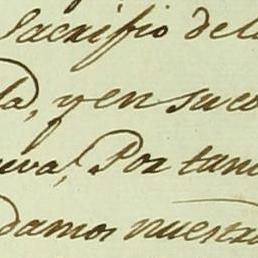 Sacrifio de la
da, y en su co
uva, Por tan
damos nuestra